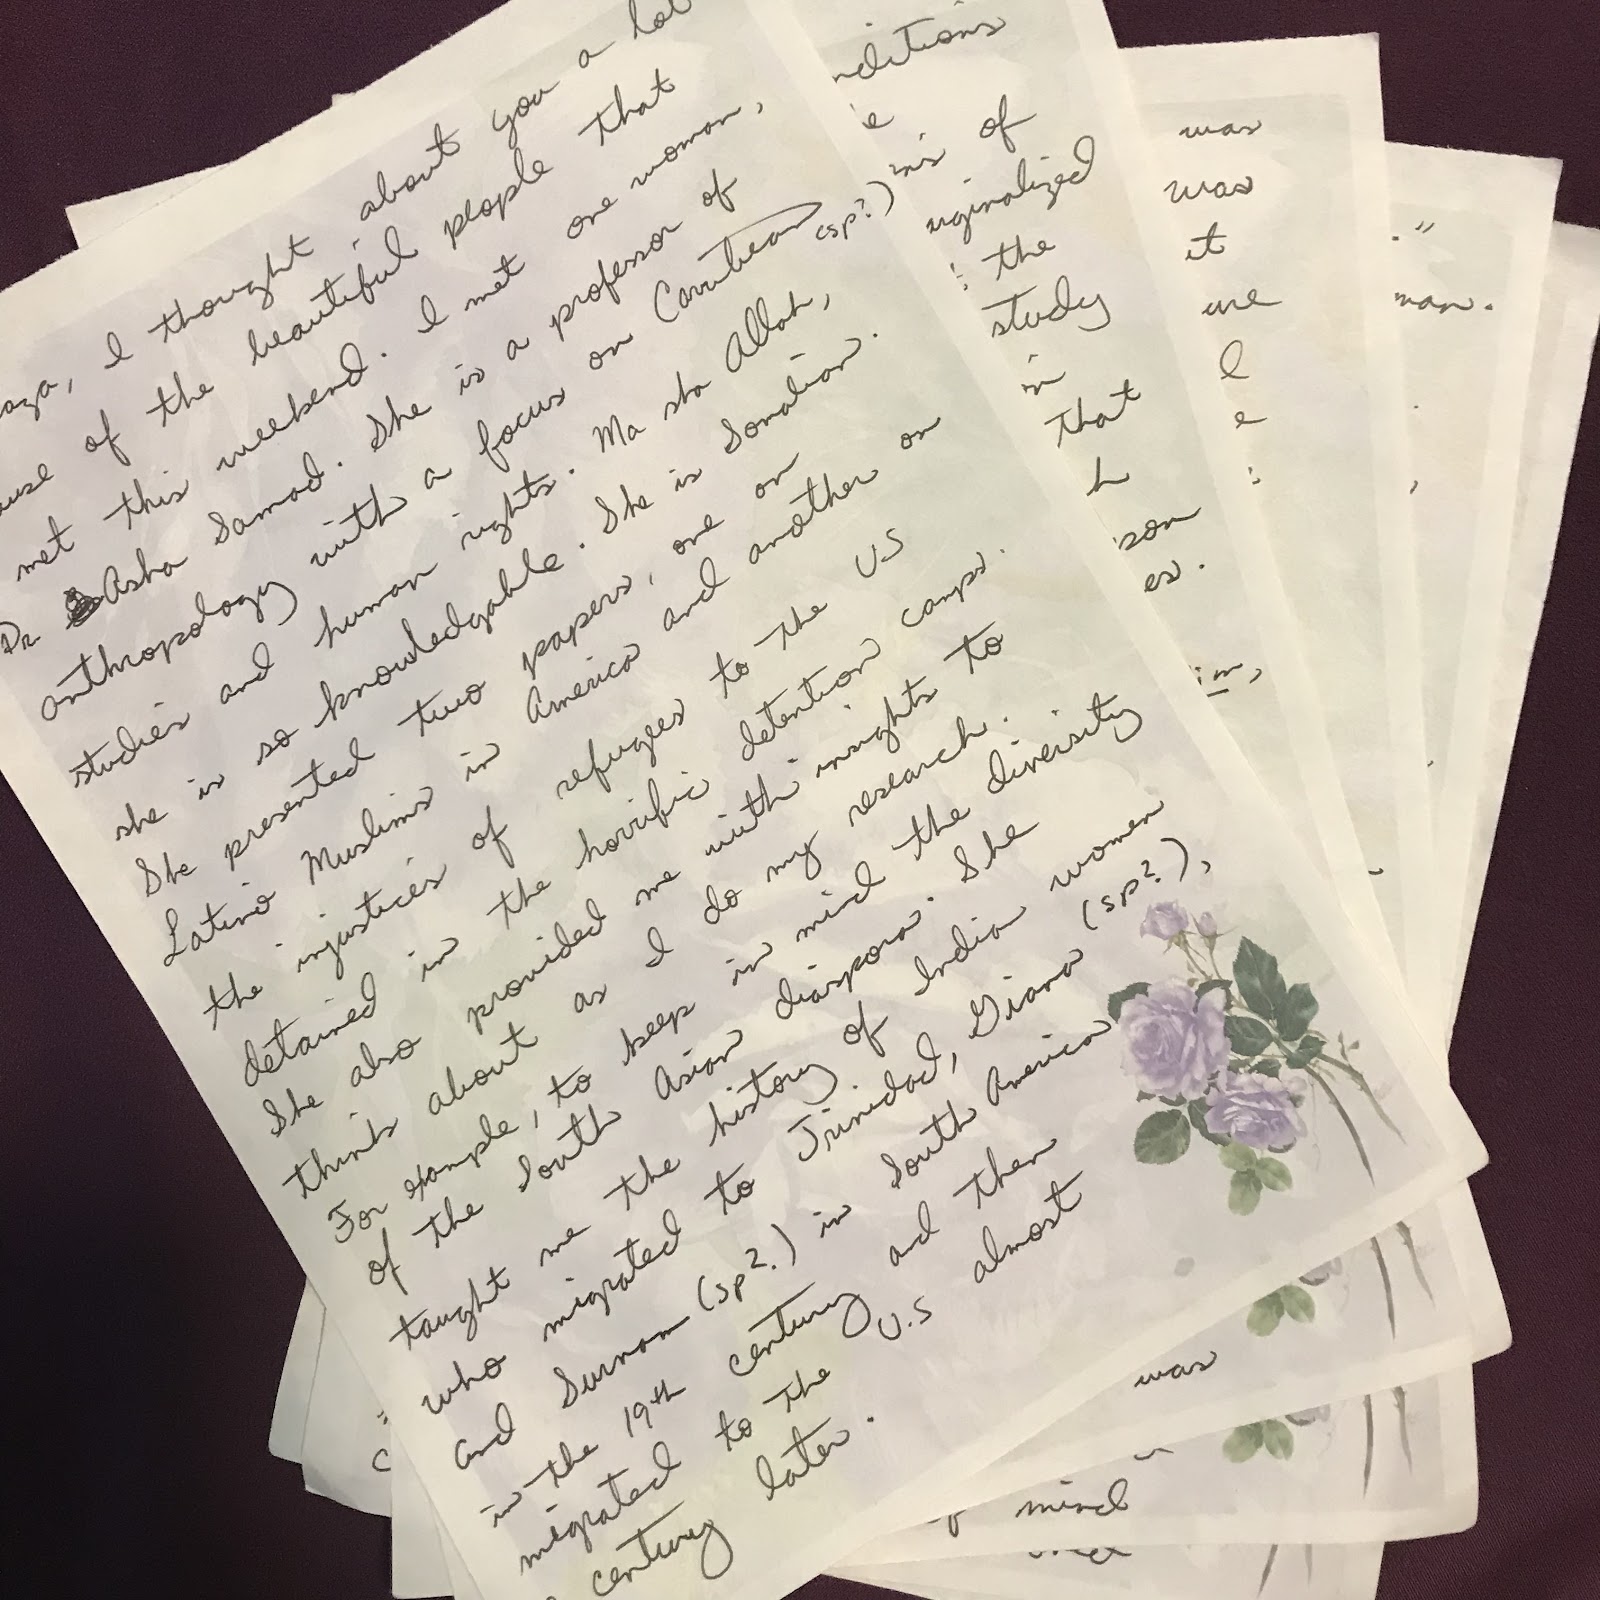 I thought about you a lot
of the beautiful people that
met this weekend. I met one woman,
Dr Asha Samad. She is a professor of
anthropology with a focus on Carribean (sp?)
studies and human rights. Ma sha Allah,
she is so knowledgable. She is Somalian.
She presented two papers, one on
Latino Muslims in America and another on
the injustices of refugees to the US
detained in the horrific detention camps.
She also provided me with insights to
think about as I do my research.
For example, to keep in mind the diversity
of the South Asian diaspora. She
taught me the history of Indian women
who migrated to Trinidad, Giana (sp?),
and Surnam (sp?) in South America
in the 19th century and then
migrated to the U.S almost
century later.
of
the
study
in
that
was
was
it
was
mind